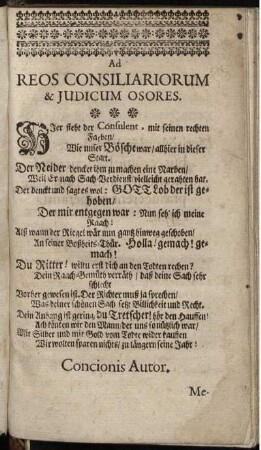 Ad
REOS CONSILIARIORUM
& JUDICUM OSORES.
* * *
HIer stehet der Consulent, mit seinen rechten
Farben/
Wie unser Böscht war/ allhier in dieser
Statt.
Der Neider dencket ihm zu machen eine Narben/
Weil Er nach Sach Verdienst vielleicht gerathen hat.
Der denckt und sagt es wol: GOTT Lob der ist ge-
hoben/
Der mir entgegen war: Nun seh ich meine
Raach:
Alß wann der Riegel wär nun gantz hinweg geschoben/
An seiner Boßheits-Thür. Holla/ gemach! ge-
mach!
Du Ritter! wiltu erst dich an den Todten rechen?
Dein Raach-Gemüth verräth/ daß deine Sach sehr
schlecht
Vorher gewesen ist. Der Richter muß ja sprechen/
Was deiner schönen Sach setz Billichkeit und Recht.
Dein Anhang ist gering, du Tretscher! hör den Hauffen:
Ach könten wir den Mann/ der uns so nützlich war/
Mit Silber und mit Gold vom Todte wider kauffen
Wir wolten sparen nichts/ zu längern seine Jahr!
Concionis Autor.
Me-